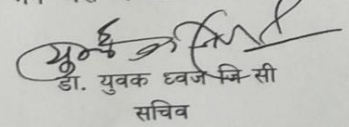 डा. युवक ध्वज जि सी
सचिव